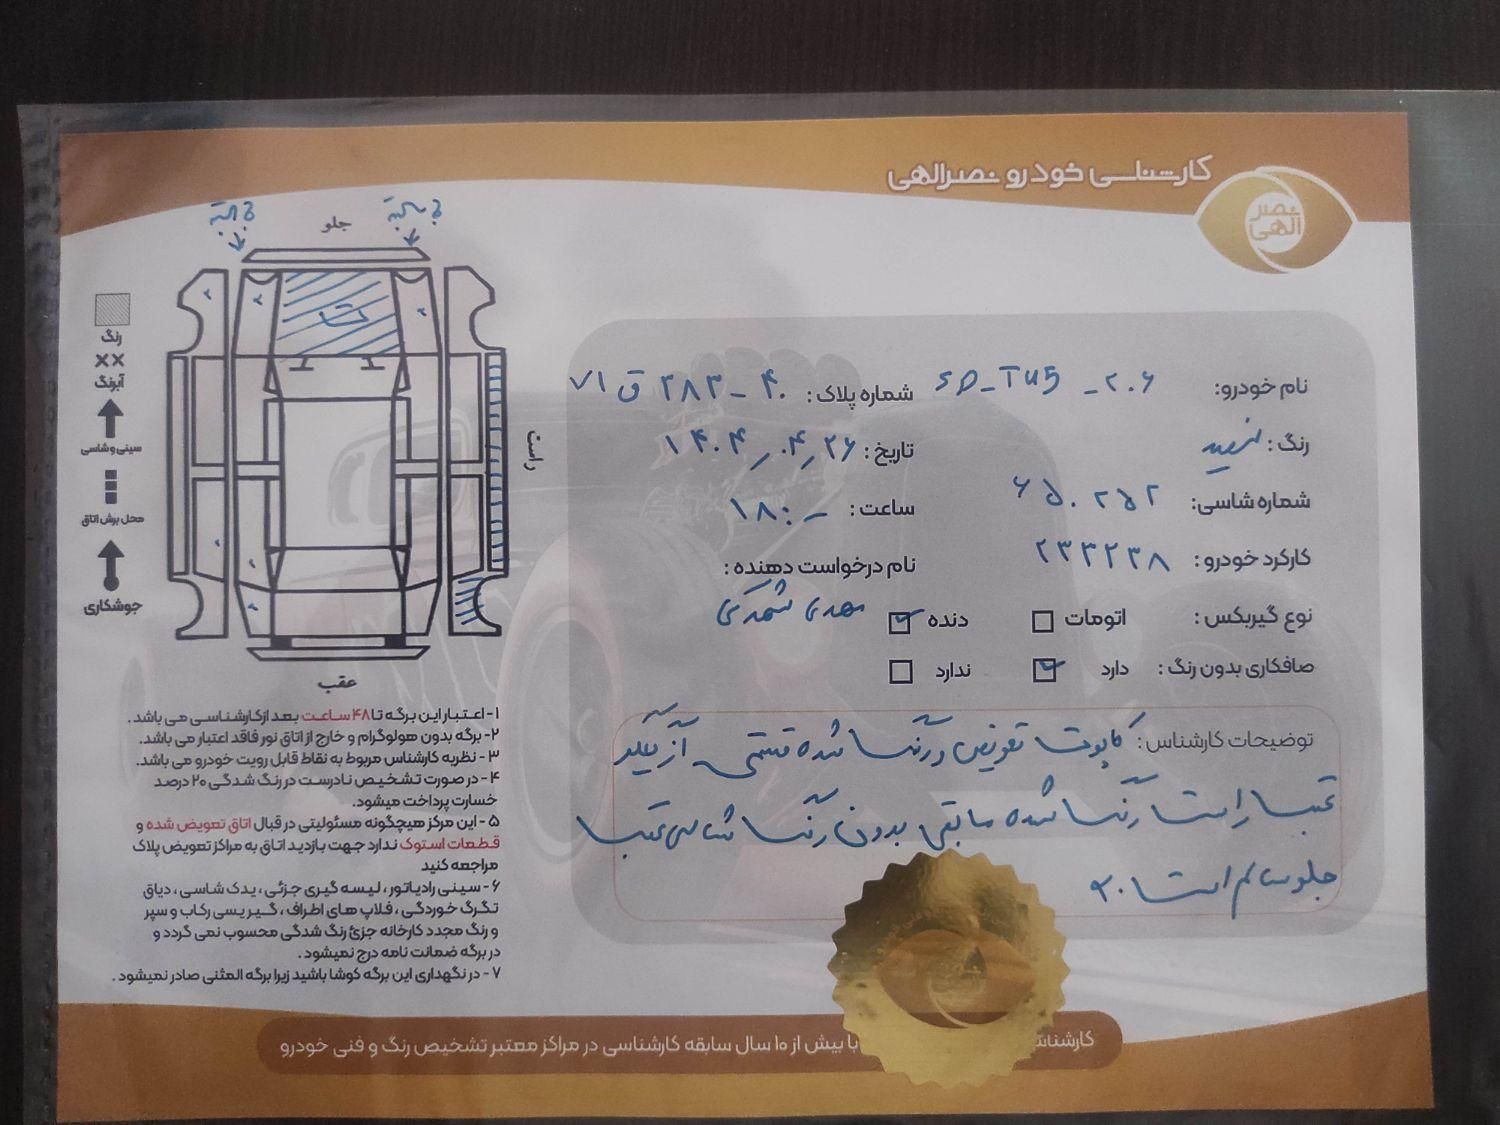 کارشناسی خودرو نصرالهی
نصر
الهی
جلو
ت
راست
عقب
رنگ
×× آبرنگ
سینی و شاسی
محل برش اتاق
جوشکاری
نام خودرو: ۲۰۶ - SD - TU5
شماره پلاک: ۴۰ - ۲۸۳ ق ۷۱
رنگ: سفید
تاریخ: ۱۴۰۴/۰۴/۲۶
شماره شاسی: ۶۵۰۲۵۲
ساعت: ۱۸:۰۰
کارکرد خودرو: ۲۳۳۲۳۸
نام درخواست دهنده:
مهدی
نوع گیربکس: اتومات دنده
صافکاری بدون رنگ: دارد ندارد
توضیحات کارشناس: کاپوت تعویض و رنگ شده قسمتی از گلگیر
عقب راست رنگ شده مابقی بدون رنگ شاسی عقب
جلو سالم است.
۱- اعتبار این برگه تا ۴۸ ساعت بعد از کارشناسی می باشد.
۲- برگه بدون هولوگرام و خارج از اتاق نور فاقد اعتبار می باشد.
۳- نظریه کارشناس مربوط به نقاط قابل رویت خودرو می باشد.
۴- در صورت تشخیص نادرست در رنگ شدگی ۲۰ درصد
خسارت پرداخت میشود.
۵- این مرکز هیچگونه مسئولیتی در قبال اتاق تعویض شده و
قطعات استوک ندارد جهت بازدید اتاق به مراکز تعویض پلاک
مراجعه کنید
۶- سینی رادیاتور، لیسه گیری جزئی، یدک شاسی، دیاق
تگرگ خوردگی، فلاپ های اطراف، گیریسی رکاب و سپر
و رنگ مجدد کارخانه جزئ رنگ شدگی محسوب نمی گردد و
در برگه ضمانت نامه درج نمیشود.
۷- در نگهداری این برگه کوشا باشید زیرا برگه المثنی صادر نمیشود.
با بیش از ۱۰ سال سابقه کارشناسی در مراکز معتبر تشخیص رنگ و فنی خودرو